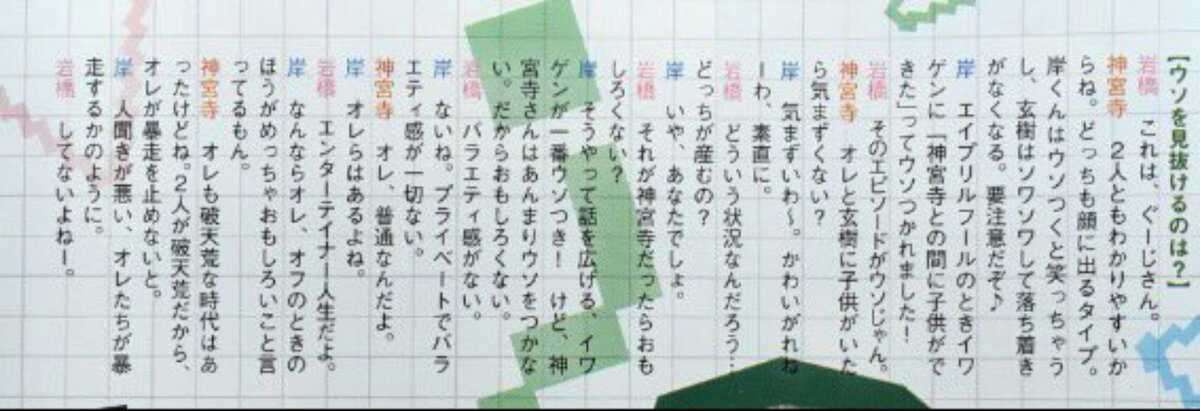 【ウソを見抜けるのは？】
岩橋　これは、ぐーじさん。
神宮寺　２人ともわかりやすいか
らね。どっちも顔に出るタイプ。
岸くんはウソつくと笑っちゃう
し、玄樹はソワソワして落ち着き
がなくなる。要注意だぞ♪
岸　エイプリルフールのときイワ
ゲンに「神宮寺との間に子供がで
きた」ってウソつかれました！
岩橋　そのエピソードがウソじゃん。
神宮寺　オレと玄樹に子供がいた
ら気まずくない？
岸　気まずいわ〜。かわいがれね
ーわ、素直に。
岩橋　どういう状況なんだろう…
どっちが産むの？
岸　いや、あなたでしょ。
岩橋　それが神宮寺だったらおも
しろくない？
岸　そうやって話を広げる、イワ
ゲンが一番ウソつき！　けど、神
宮寺さんはあんまりウソをつかな
い。だからおもしろくない。
岩橋　バラエティ感がない。
岸　ないね。プライベートでバラ
エティ感が一切ない。
神宮寺　オレ、普通なんだよ。
岸　オレらはあるよね。
岩橋　エンターテイナー人生だよ。
岸　なんならオレ、オフのときの
ほうがめっちゃおもしろいこと言
ってるもん。
神宮寺　オレも破天荒な時代はあ
ったけどね。２人が破天荒だから、
オレが暴走を止めないと。
岸　人聞きが悪い、オレたちが暴
走するかのように。
岩橋　してないよねー。